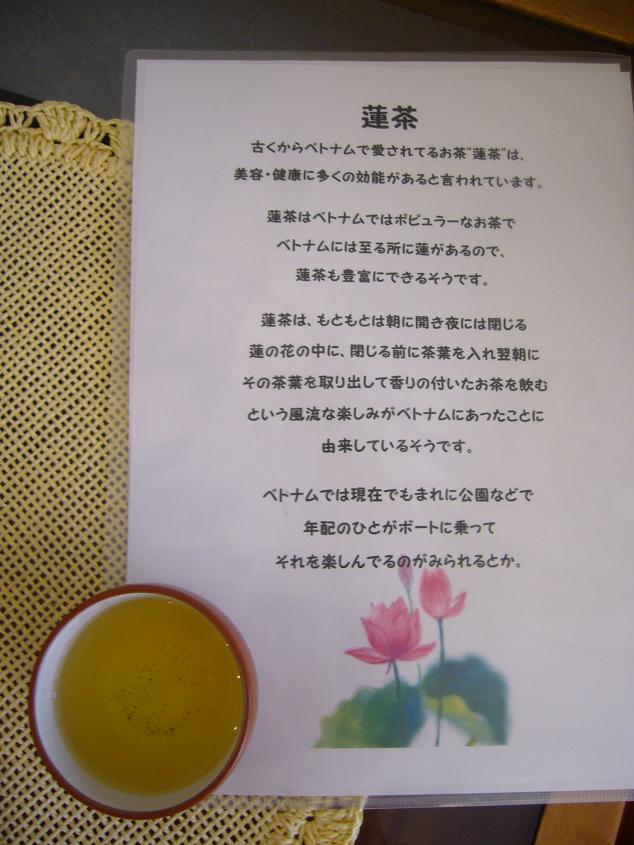 蓮茶
古くからベトナムで愛されてるお茶"蓮茶"は、
美容・健康に多くの効能があると言われています。
蓮茶はベトナムではポピュラーなお茶で
ベトナムには至る所に蓮があるので、
蓮茶も豊富にできるそうです。
蓮茶は、もともとは朝に開き夜には閉じる
蓮の花の中に、閉じる前に茶葉を入れ翌朝に
その茶葉を取り出して香りの付いたお茶を飲む
という風流な楽しみがベトナムにあったことに
由来しているそうです。
ベトナムでは現在でもまれに公園などで
年配のひとがボートに乗って
それを楽しんでるのがみられるとか。